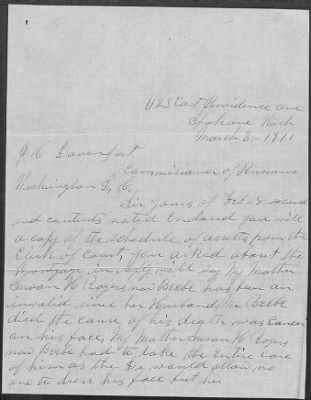 1128 East Providence ave
Spokane Wash
March 3 - 1911
J C Davenport
Commissioner of Pensions
Washington D, C,
Sir yours of Feb received
and contents noted Enclosed you will
a copy of the schedule of assetts from the
Clerk of Court, you asked about the
in reply will say My Mother
Susan H Rogers now Beebe has ben an
invalid since her Husband Mr Beebe
died the cause of his death was Cancer
on his face, My Mother Susan H Rogers
now Beebe had to take the Entire care
of him as the Dr, would allow no
one to dress his face but her